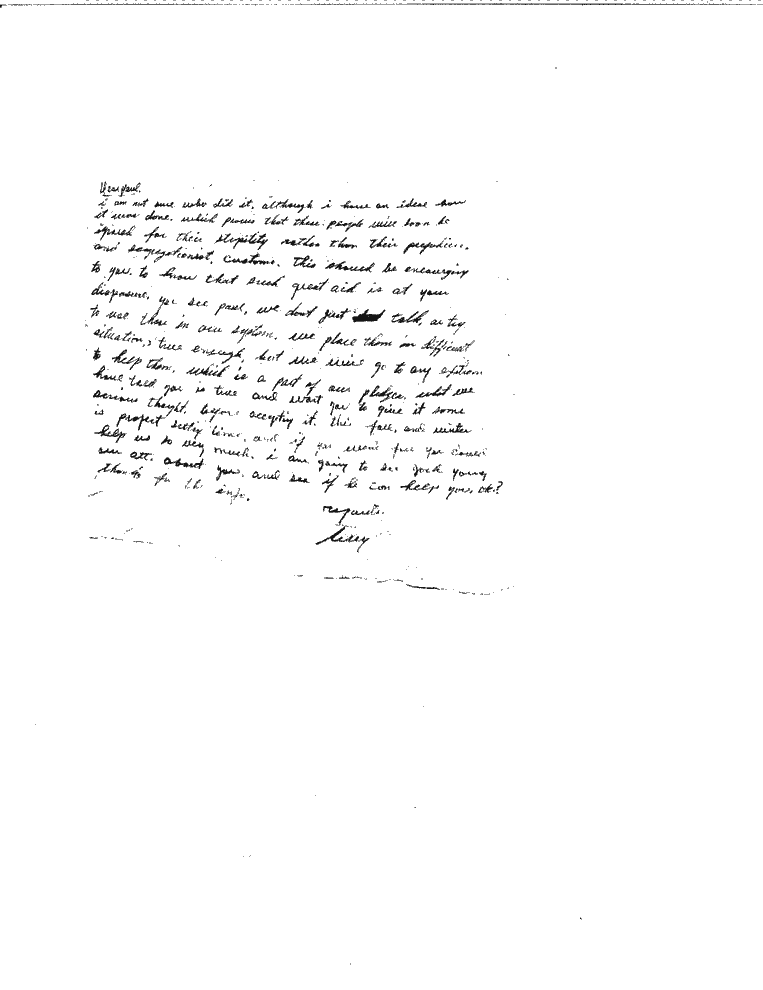 Dear paul.
i am not sure who did it, although i have an ideal how
it was done. which proves that these people will soon be
for their stupitity rather than their prejudice.
and segregationist, customs. this should be encourging
to you. to know that such great aid is at your
disposure, you see paul, we dont just talk, or try
to use those in our system. we place them in difficult
situation, true enough, but we will go to any extrem
to help them, which is a part of our pledge, what we
have told you is true and want you to give it some
serious thought, before accepting it. this fall, and winter
is project time, and if you were free you could
help us so very much. i am going to see jack young
our att. about you, and see if he can help you, ok?
thanks for the info.
regards.